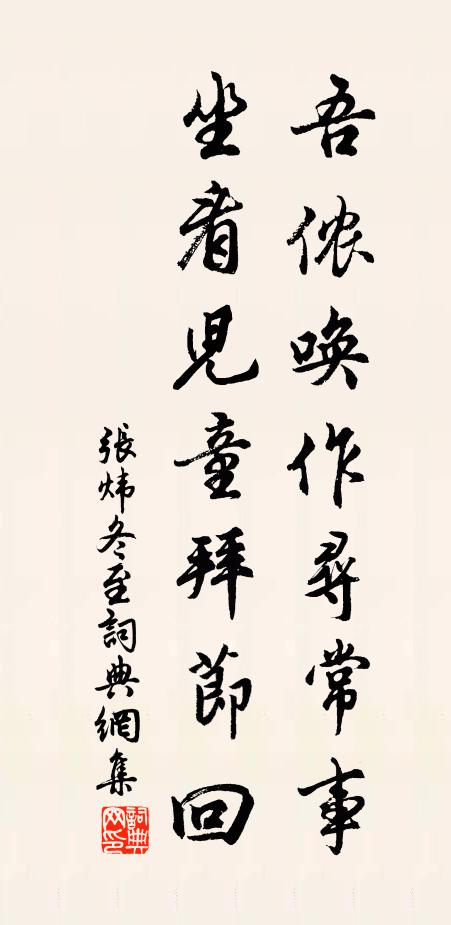 吾侬唤作尋常事
坐看児童拜節回
張炜冬至詞典網集
詞典网印